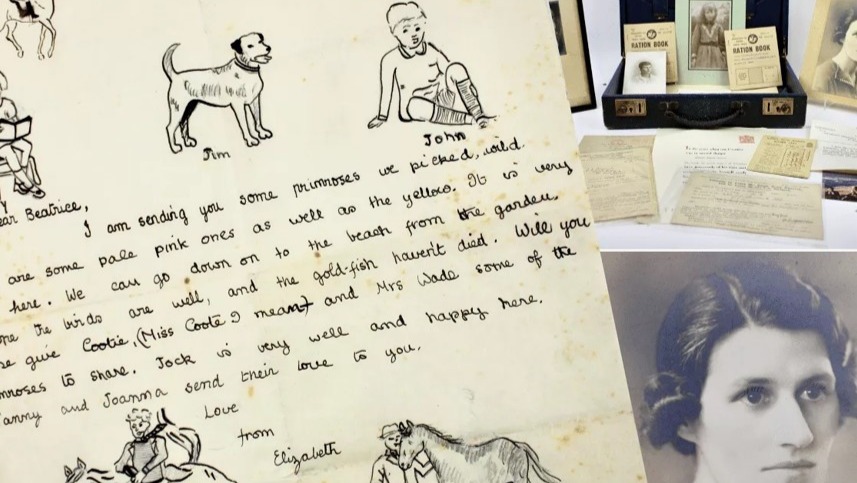 Jim
John
ear Beatrice,
I am sending you some primroses we picked, wild.
are some pale pink ones as well as the yellow. It is very
here. We can go down on to the beach from the garden.
the birds are well, and the gold-fish haven't died. Will you
se give Cootie, (Miss Coote I mean) and Mrs Wade some of the
mroses to share. Jock is very well and happy here.
anny and Joanna send their love to you.
Love
from
Elizabeth
RATION BOOK
RATION BOOK